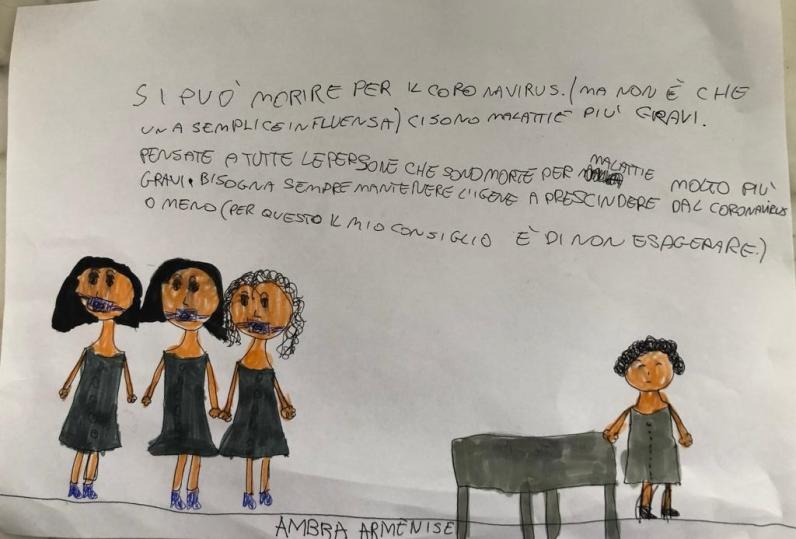 SI PUO' MORIRE PER IL CORONAVIRUS. (MA NON È CHE
UNA SEMPLICE INFLUENSA) CI SONO MALATTIE PIU' GRAVI.
PENSATE A TUTTE LE PERSONE CHE SONO MORTE PER MALATTIE MOLTO PIU'
GRAVI. BISOGNA SEMPRE MANTENERE L'IGENE A PRESCINDERE DAL CORONAVIRUS
O MENO (PER QUESTO IL MIO CONSIGLIO È DI NON ESAGERARE.)
AMBRA ARMENISE